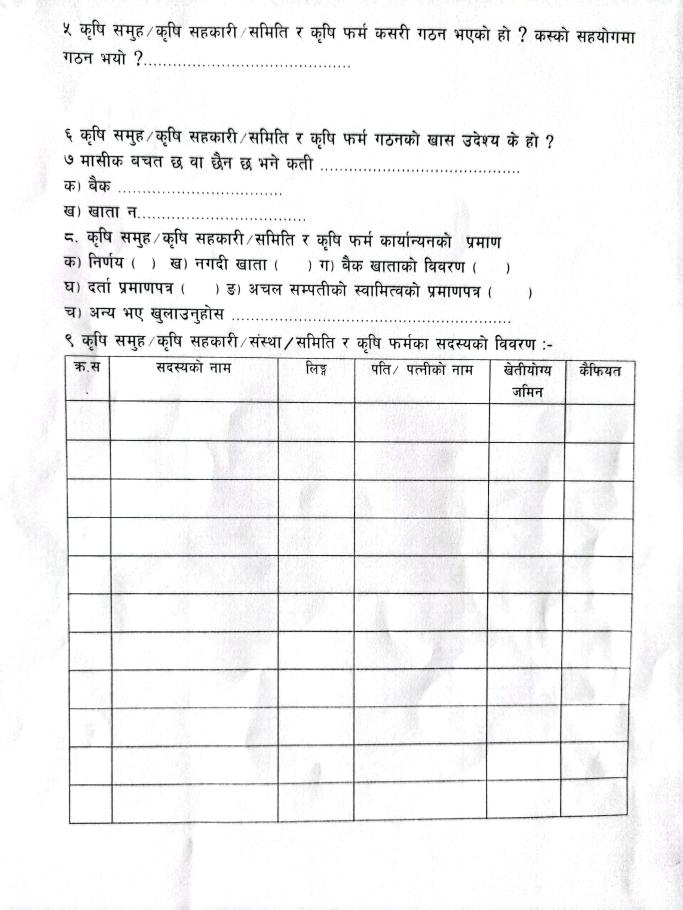 ५ कृषि समुह/कृषि सहकारी/समिति र कृषि फर्म कसरी गठन भएको हो ? कस्को सहयोगमा
गठन भयो ?...........................................
६ कृषि समुह/कृषि सहकारी/समिति र कृषि फर्म गठनको खास उदेश्य के हो ?
७ मासीक बचत छ वा छैन छ भने कती ..........................................
क) बैक ..................................
ख) खाता न...................................
८. कृषि समुह/कृषि सहकारी/समिति र कृषि फर्म कार्यान्यनको प्रमाण
क) निर्णय ( ) ख) नगदी खाता ( ) ग) बैक खाताको विवरण ( )
घ) दर्ता प्रमाणपत्र ( ) ङ) अचल सम्पतीको स्वामित्वको प्रमाणपत्र ( )
च) अन्य भए खुलाउनुहोस ..........................................................
९ कृषि समुह/कृषि सहकारी/संस्था/समिति र कृषि फर्मका सदस्यको विवरण :-
क्र.स सदस्यको नाम लिङ्ग पति/ पत्नीको नाम खेतीयोग्य कैफियत
जमिन